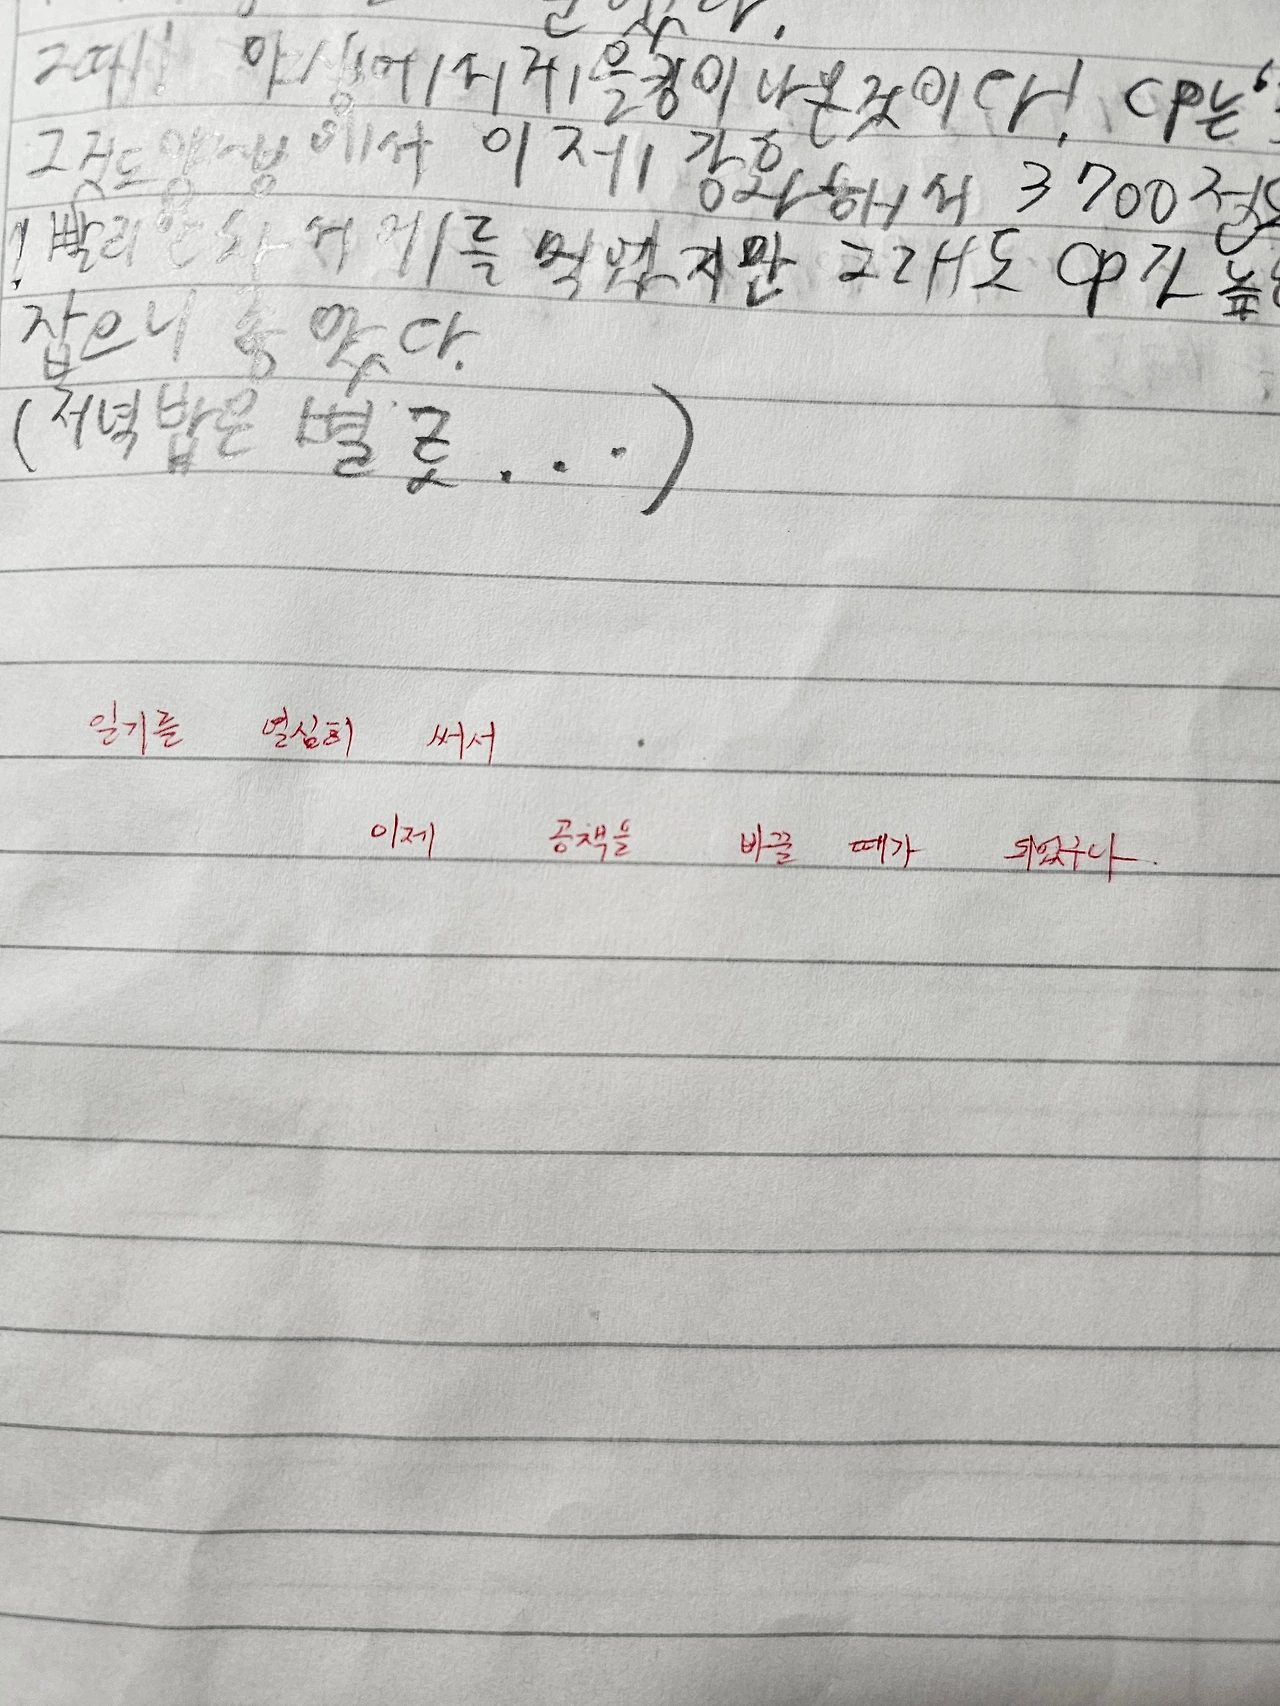 그때! 야생에서 게을킹이 나온것이다! CP는
그것도 야생에서 이제 강화해서 3700정도
! 빨리 애를 먹었지만 그래도 CP가 높은
잡으니 좋았다.
(저녁밥은 별로...)
일기를 열심히 써서
이제 공책을 바꿀 때가 되었구나.